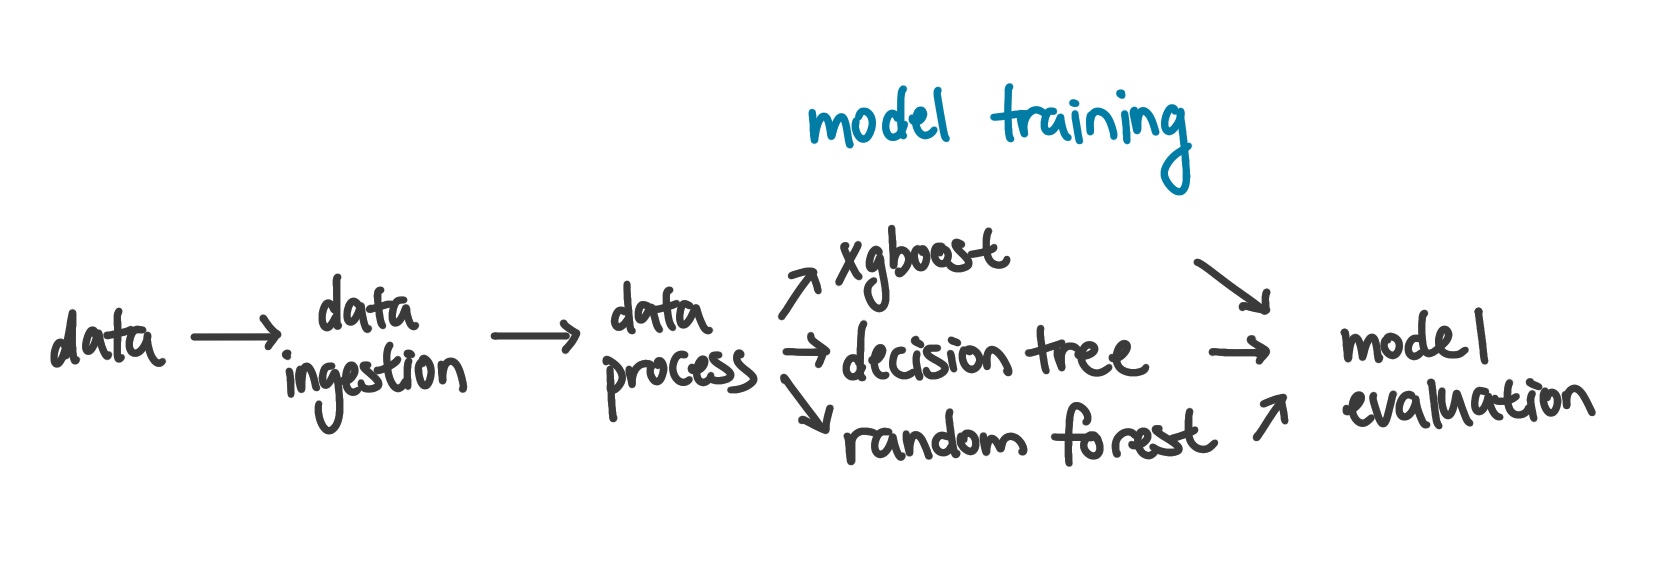 model training
data
data
ingestion
data
process
xgboost
decision tree
random forest
model
evaluation